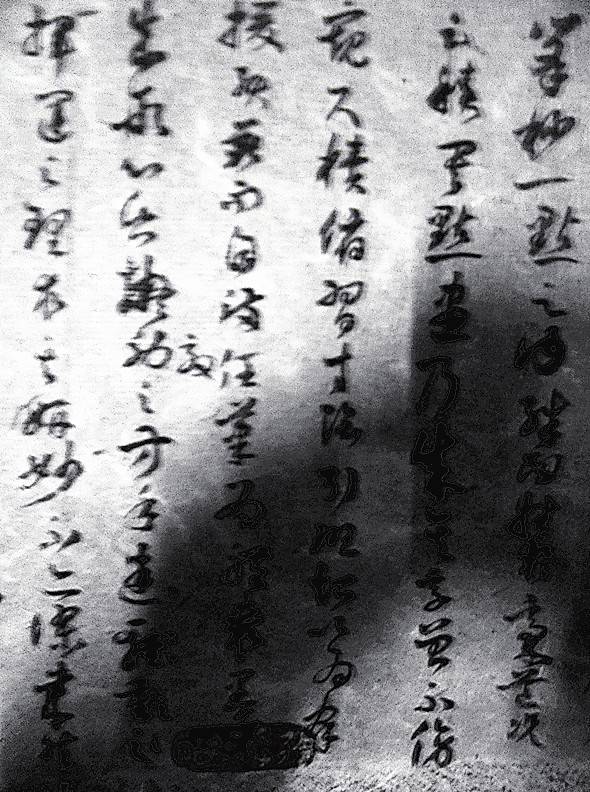 峯杪一點之內殊衄挫於毫芒況
云積其點畫乃成其字曾不傍
窺尺櫝俯習寸陰引班超以為辭
援項籍而自滿任筆為體聚墨
成形心昏擬效之方手迷
揮運之理求其妍妙不亦謬哉然